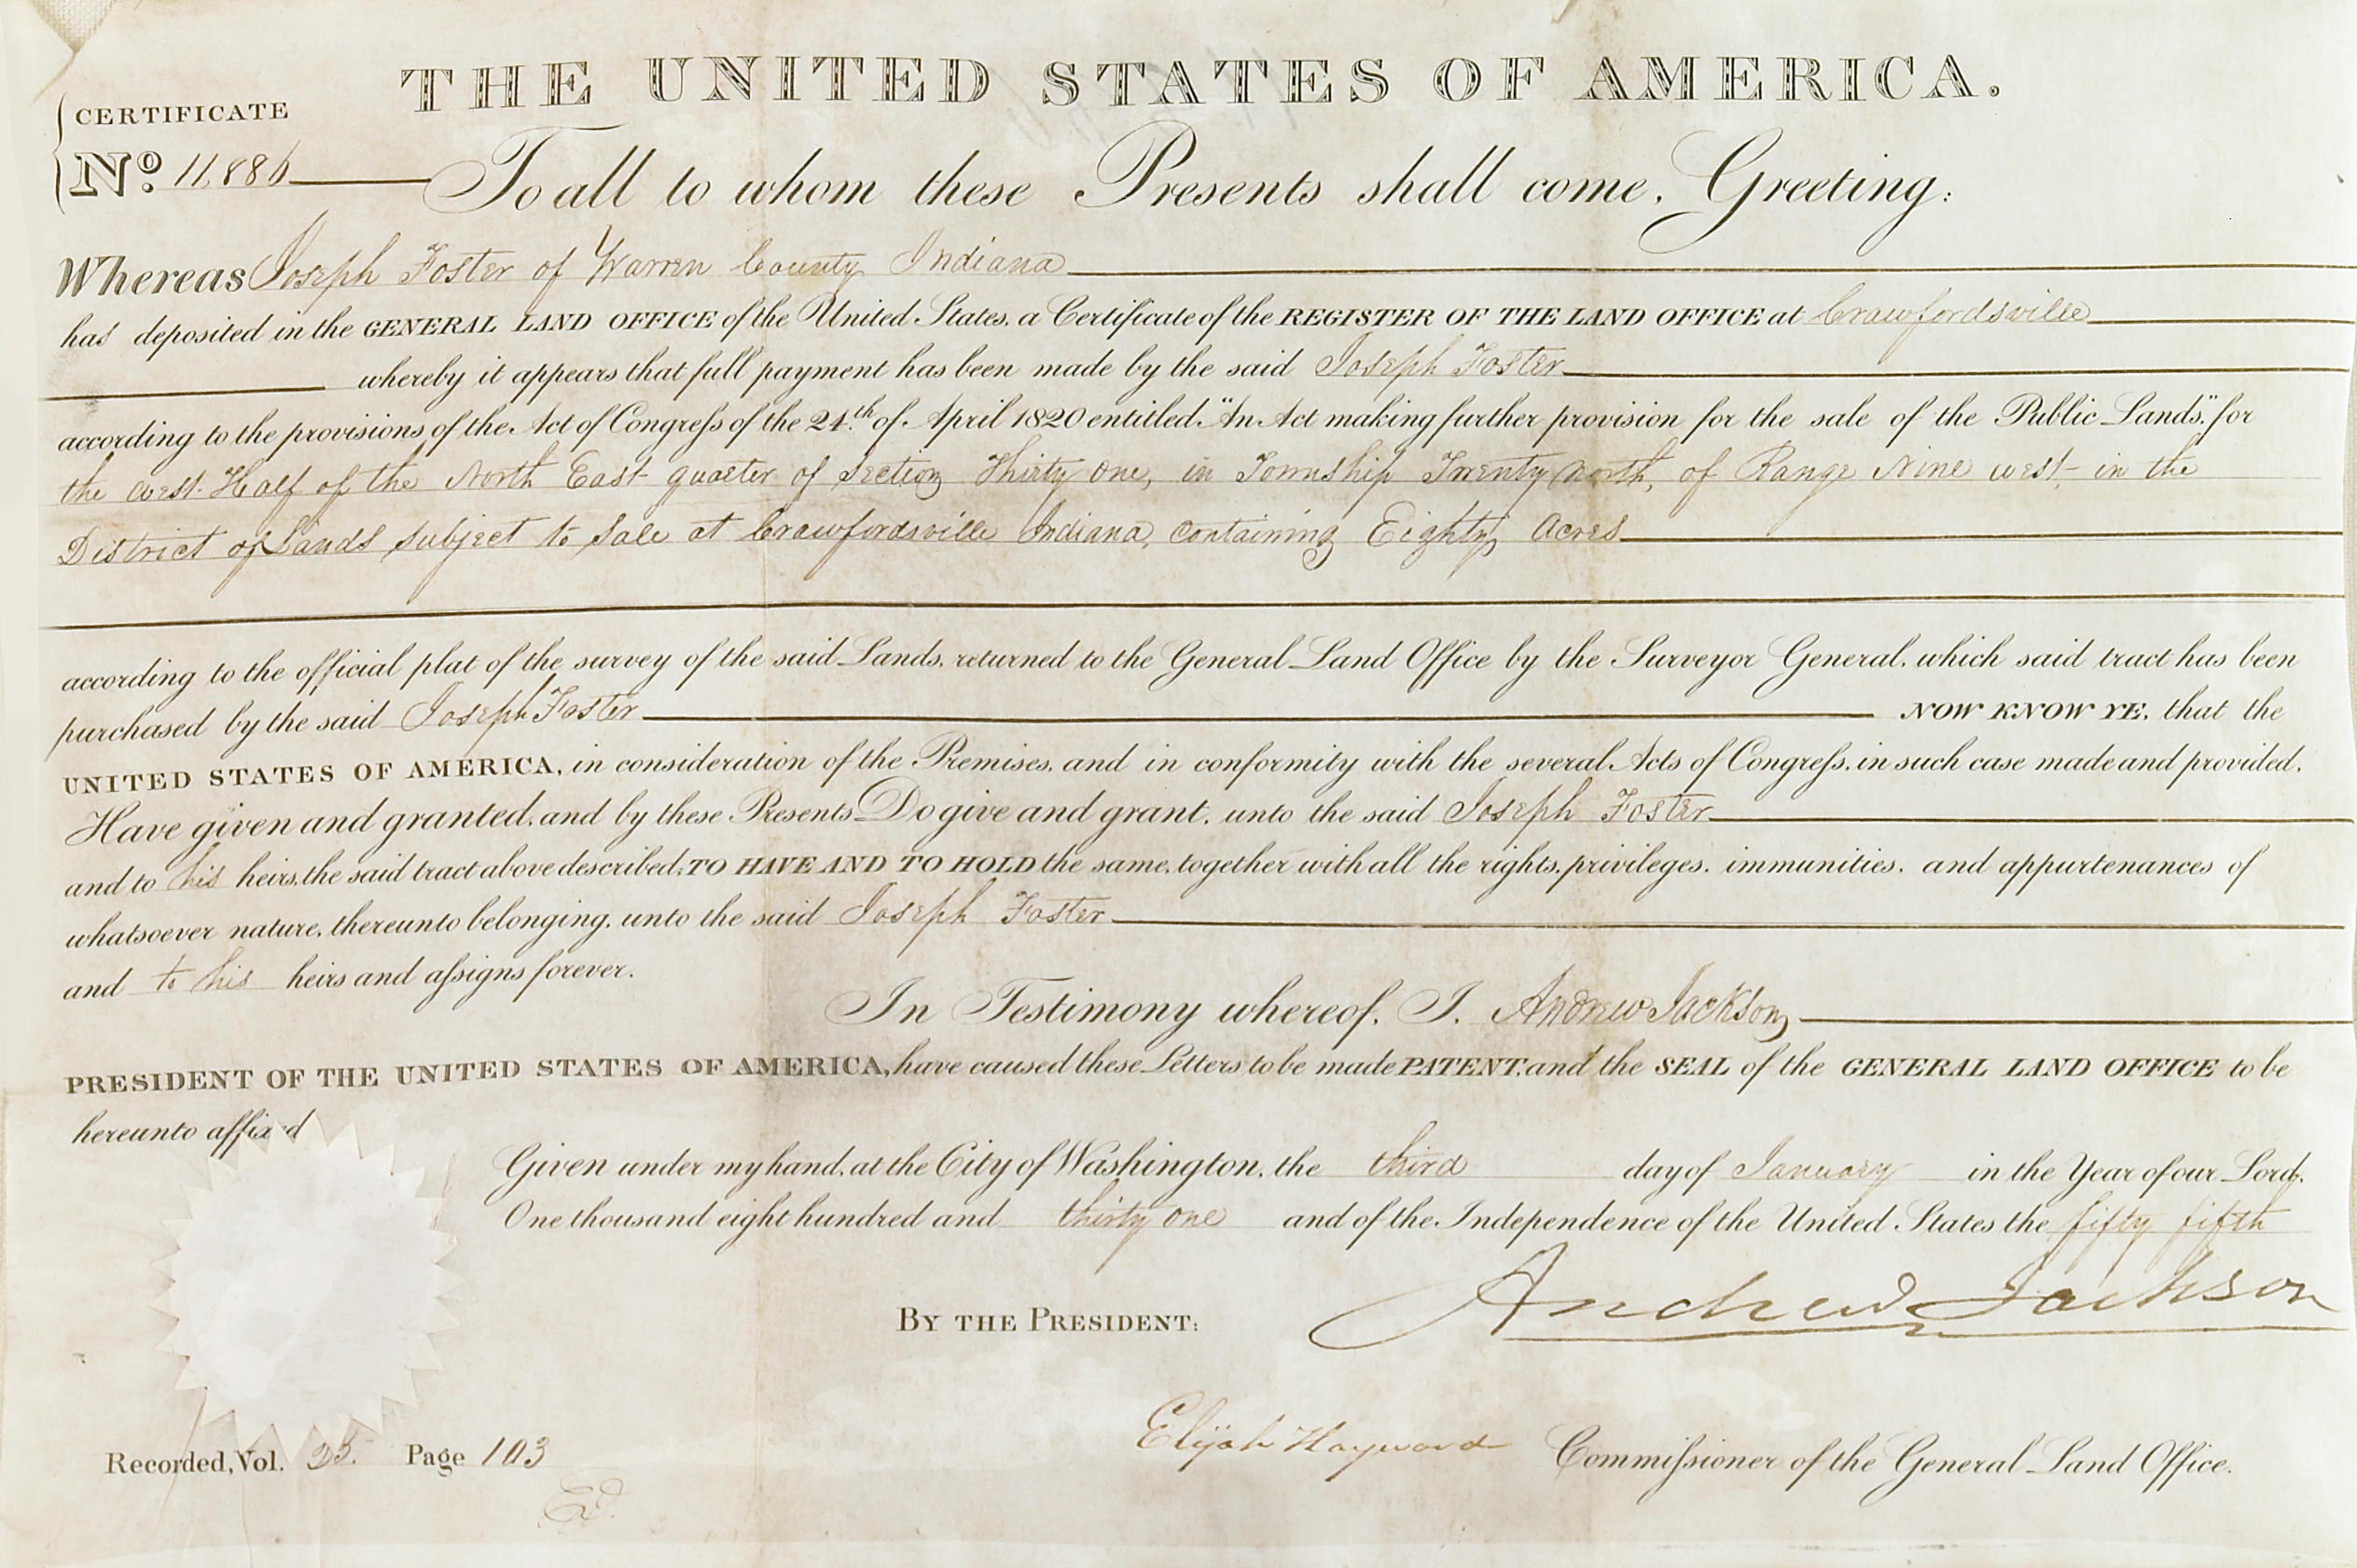 THE UNITED STATES OF AMERICA.
CERTIFICATE
No. 11,886
To all to whom these Presents shall come, Greeting:
Whereas Joseph Foster of Warren County Indiana
has deposited in the GENERAL LAND OFFICE of the United States, a Certificate of the REGISTER OF THE LAND OFFICE at Crawfordsville
whereby it appears that full payment has been made by the said Joseph Foster
according to the provisions of the Act of Congress of the 24th of April 1820 entitled "An Act making further provision for the sale of the Public Lands," for
the West Half of the North East quarter of Section Thirty One, in Township Twenty North, of Range Nine west, in the
District of Lands subject to Sale at Crawfordsville Indiana, containing Eighty Acres
according to the official plat of the survey of the said Lands, returned to the General Land Office by the Surveyor General, which said tract has been
purchased by the said Joseph Foster NOW KNOW YE, that the
UNITED STATES OF AMERICA, in consideration of the Premises, and in conformity with the several Acts of Congress, in such case made and provided,
Have given and granted, and by these Presents Do give and grant, unto the said Joseph Foster
and to his heirs, the said tract above described; TO HAVE AND TO HOLD the same, together with all the rights, privileges, immunities, and appurtenances of
whatsoever nature, thereunto belonging, unto the said Joseph Foster
and to his heirs and assigns forever.
In Testimony whereof, I, Andrew Jackson
PRESIDENT OF THE UNITED STATES OF AMERICA, have caused these Letters to be made PATENT, and the SEAL of the GENERAL LAND OFFICE to be
hereunto affixed
Given under my hand, at the City of Washington, the third day of January in the Year of our Lord,
One thousand eight hundred and thirty one and of the Independence of the United States the fifty fifth
Andrew Jackson
BY THE PRESIDENT:
Elijah Hayward Commissioner of the General Land Office.
Recorded, Vol. 25. Page 103